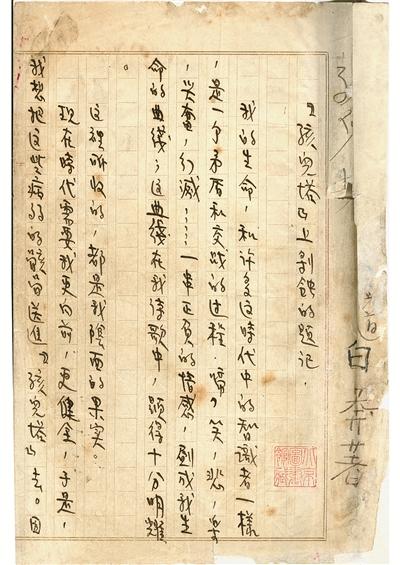 白莽著
『孩兒塔』上剝蝕的題記.
我的生命，和許多这時代中的智識者一樣
，是一个矛盾和交战的过程.啼，笑，悲，樂
，兴奮，幻滅……一串正負的情感，劃成我生
命的曲线；这曲线在我詩歌中，顯得十分明耀
。
这裡所收的，都是我陰面的果实。
现在時代需要我更向前，更健全，于是，
我想把这些病弱的骸骨送進『孩兒塔』去。因